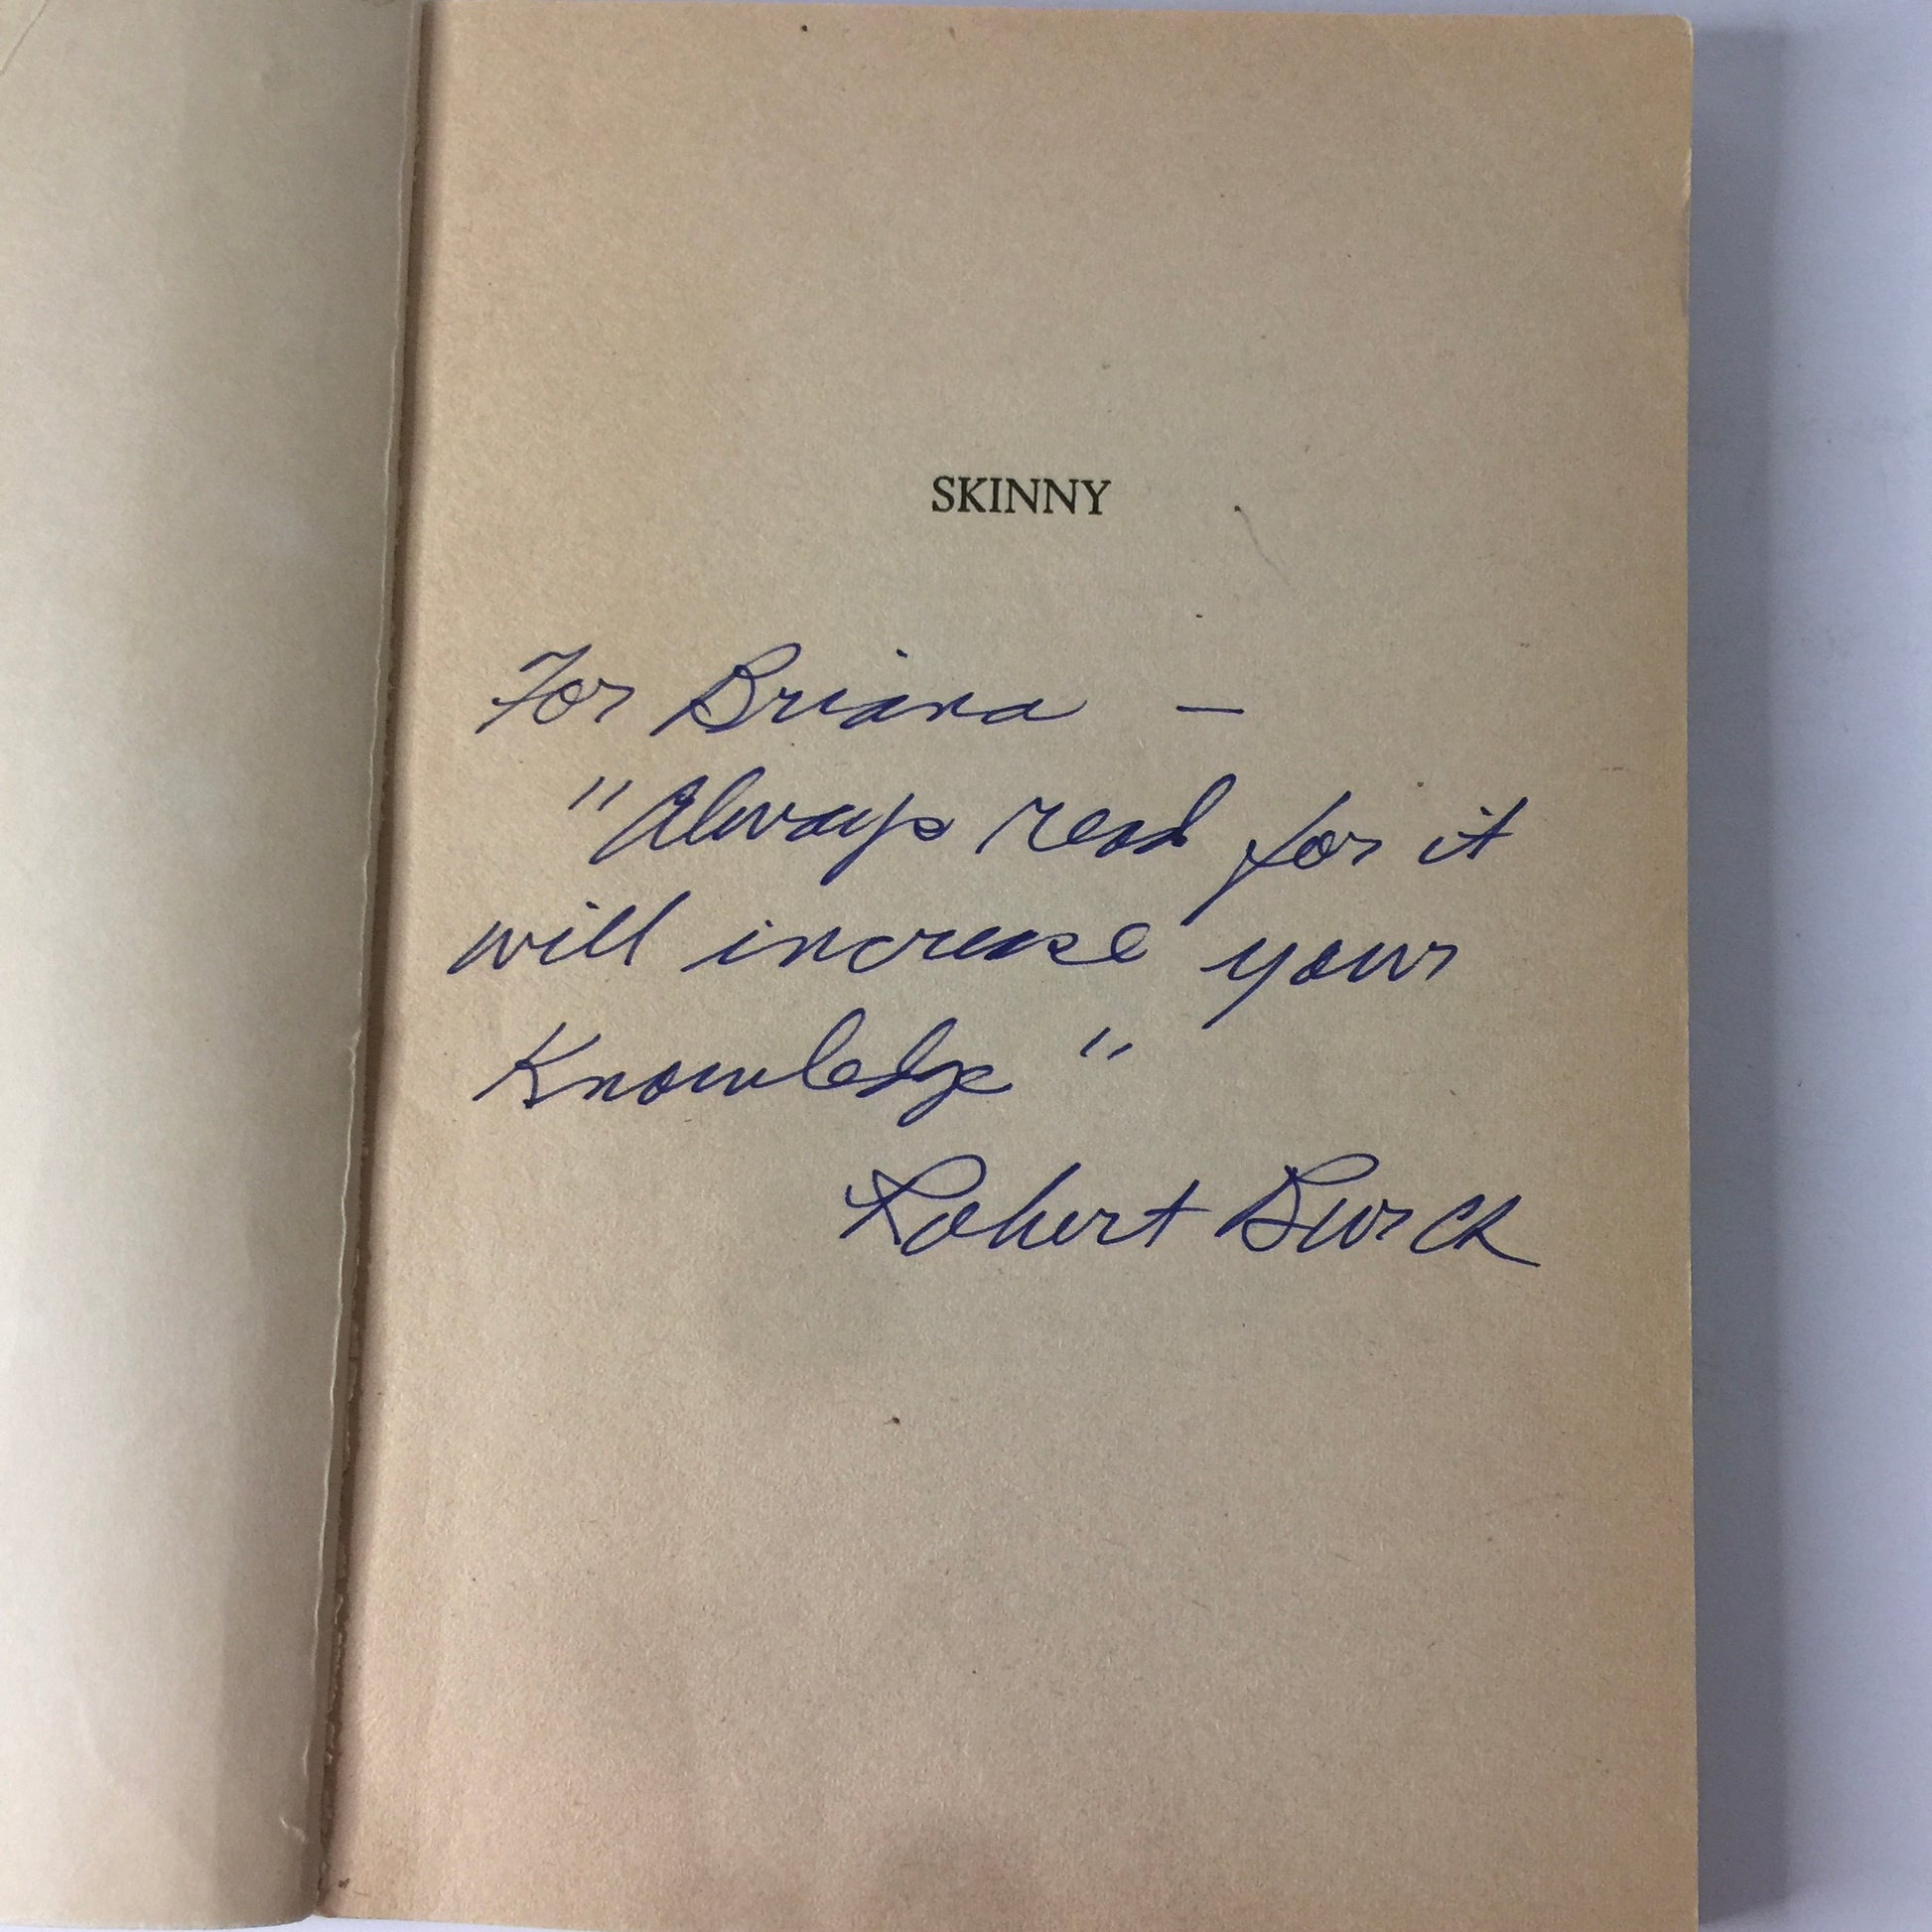 SKINNY
For Briana —
"Always read for it
will increase your
Knowledge"
Robert Burch